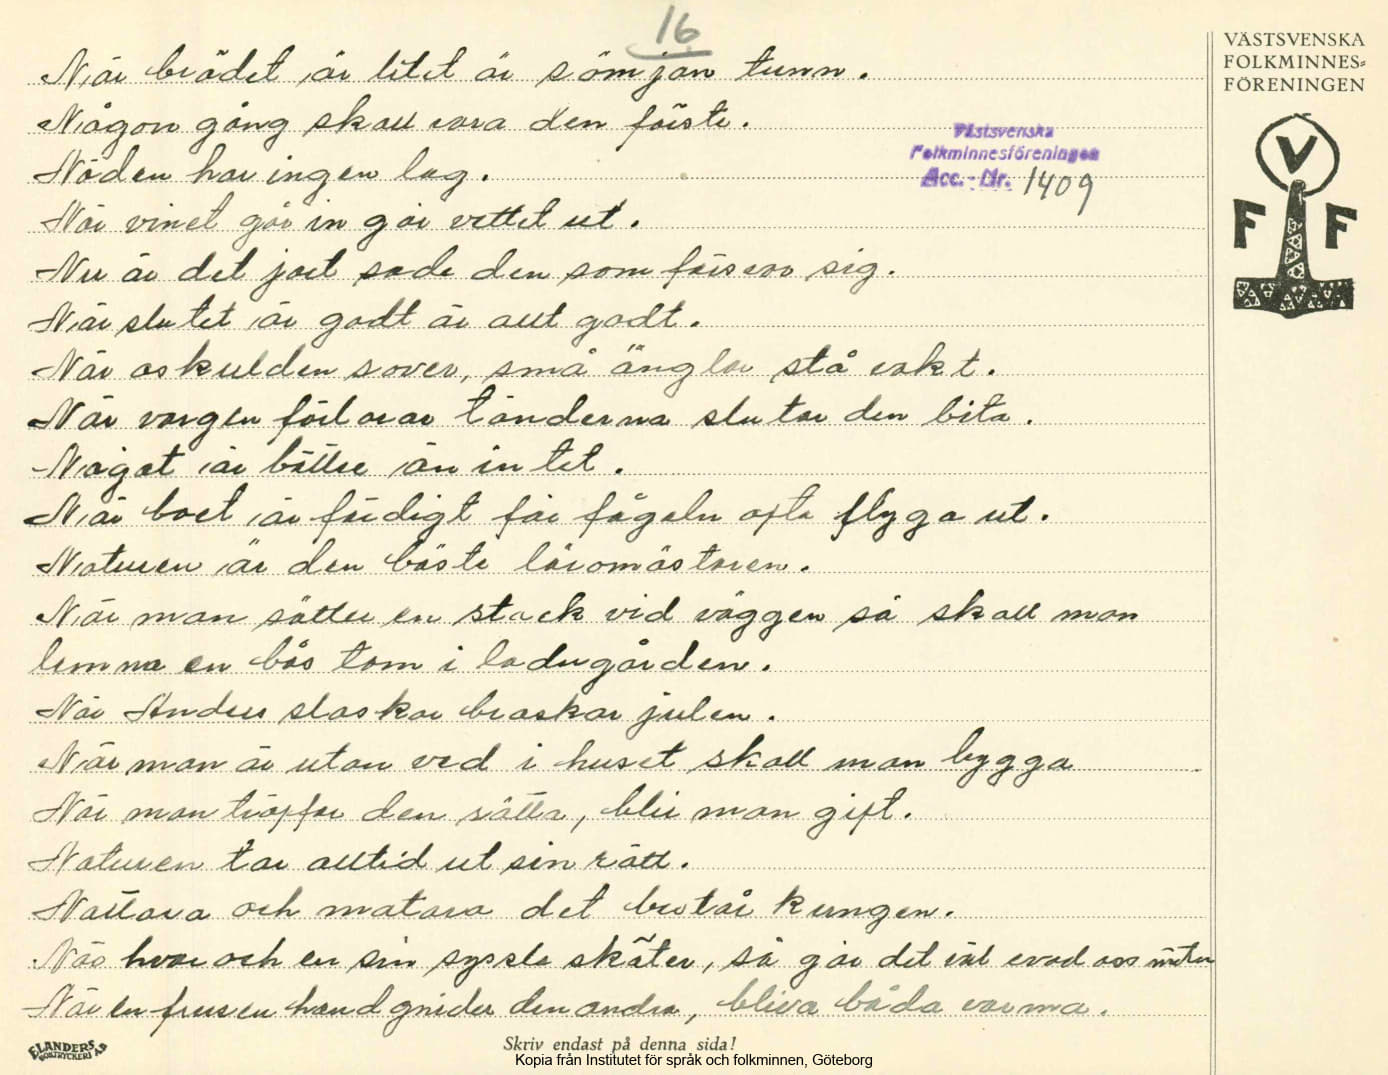 16
VÄSTSVENSKA
FOLKMINNES-
FÖRENINGEN
När brödet är litet är sömjan tunn.
Någon gång skall vara den första.
Västsvenska
Folkminnesföreningen
Acc.-Nr. 1409
Nöden har ingen lag.
När vinet går in går vettet ut.
V
F F
Nu är det jort sade den som försvor sig.
När slutet är godt är allt godt.
När oskulden sover, små änglar stå vakt.
När vargen förlorar tänderna slutar den bita.
Något är bättre än intet.
När boet är färdigt får fågeln ofta flyga ut.
Naturen är den bäste läromästaren.
När man sätter en stack vid väggen så skall man
lemna en bås tom i ladugården.
När Anders slaskar braskar julen.
När man är utan ved i huset skall man bygga
När man träffar den rätta, blir man gift.
Naturen tar alltid ut sin rätt.
och matara det kungen.
När hvar och en sin syssla sköter, så går det väl evad oss möter
När en frusen hand gnider den andra, bliva båda varma.
ELANDERS
BOKTRYCKERI AB
Skriv endast på denna sida!
Kopia från Institutet för språk och folkminnen, Göteborg